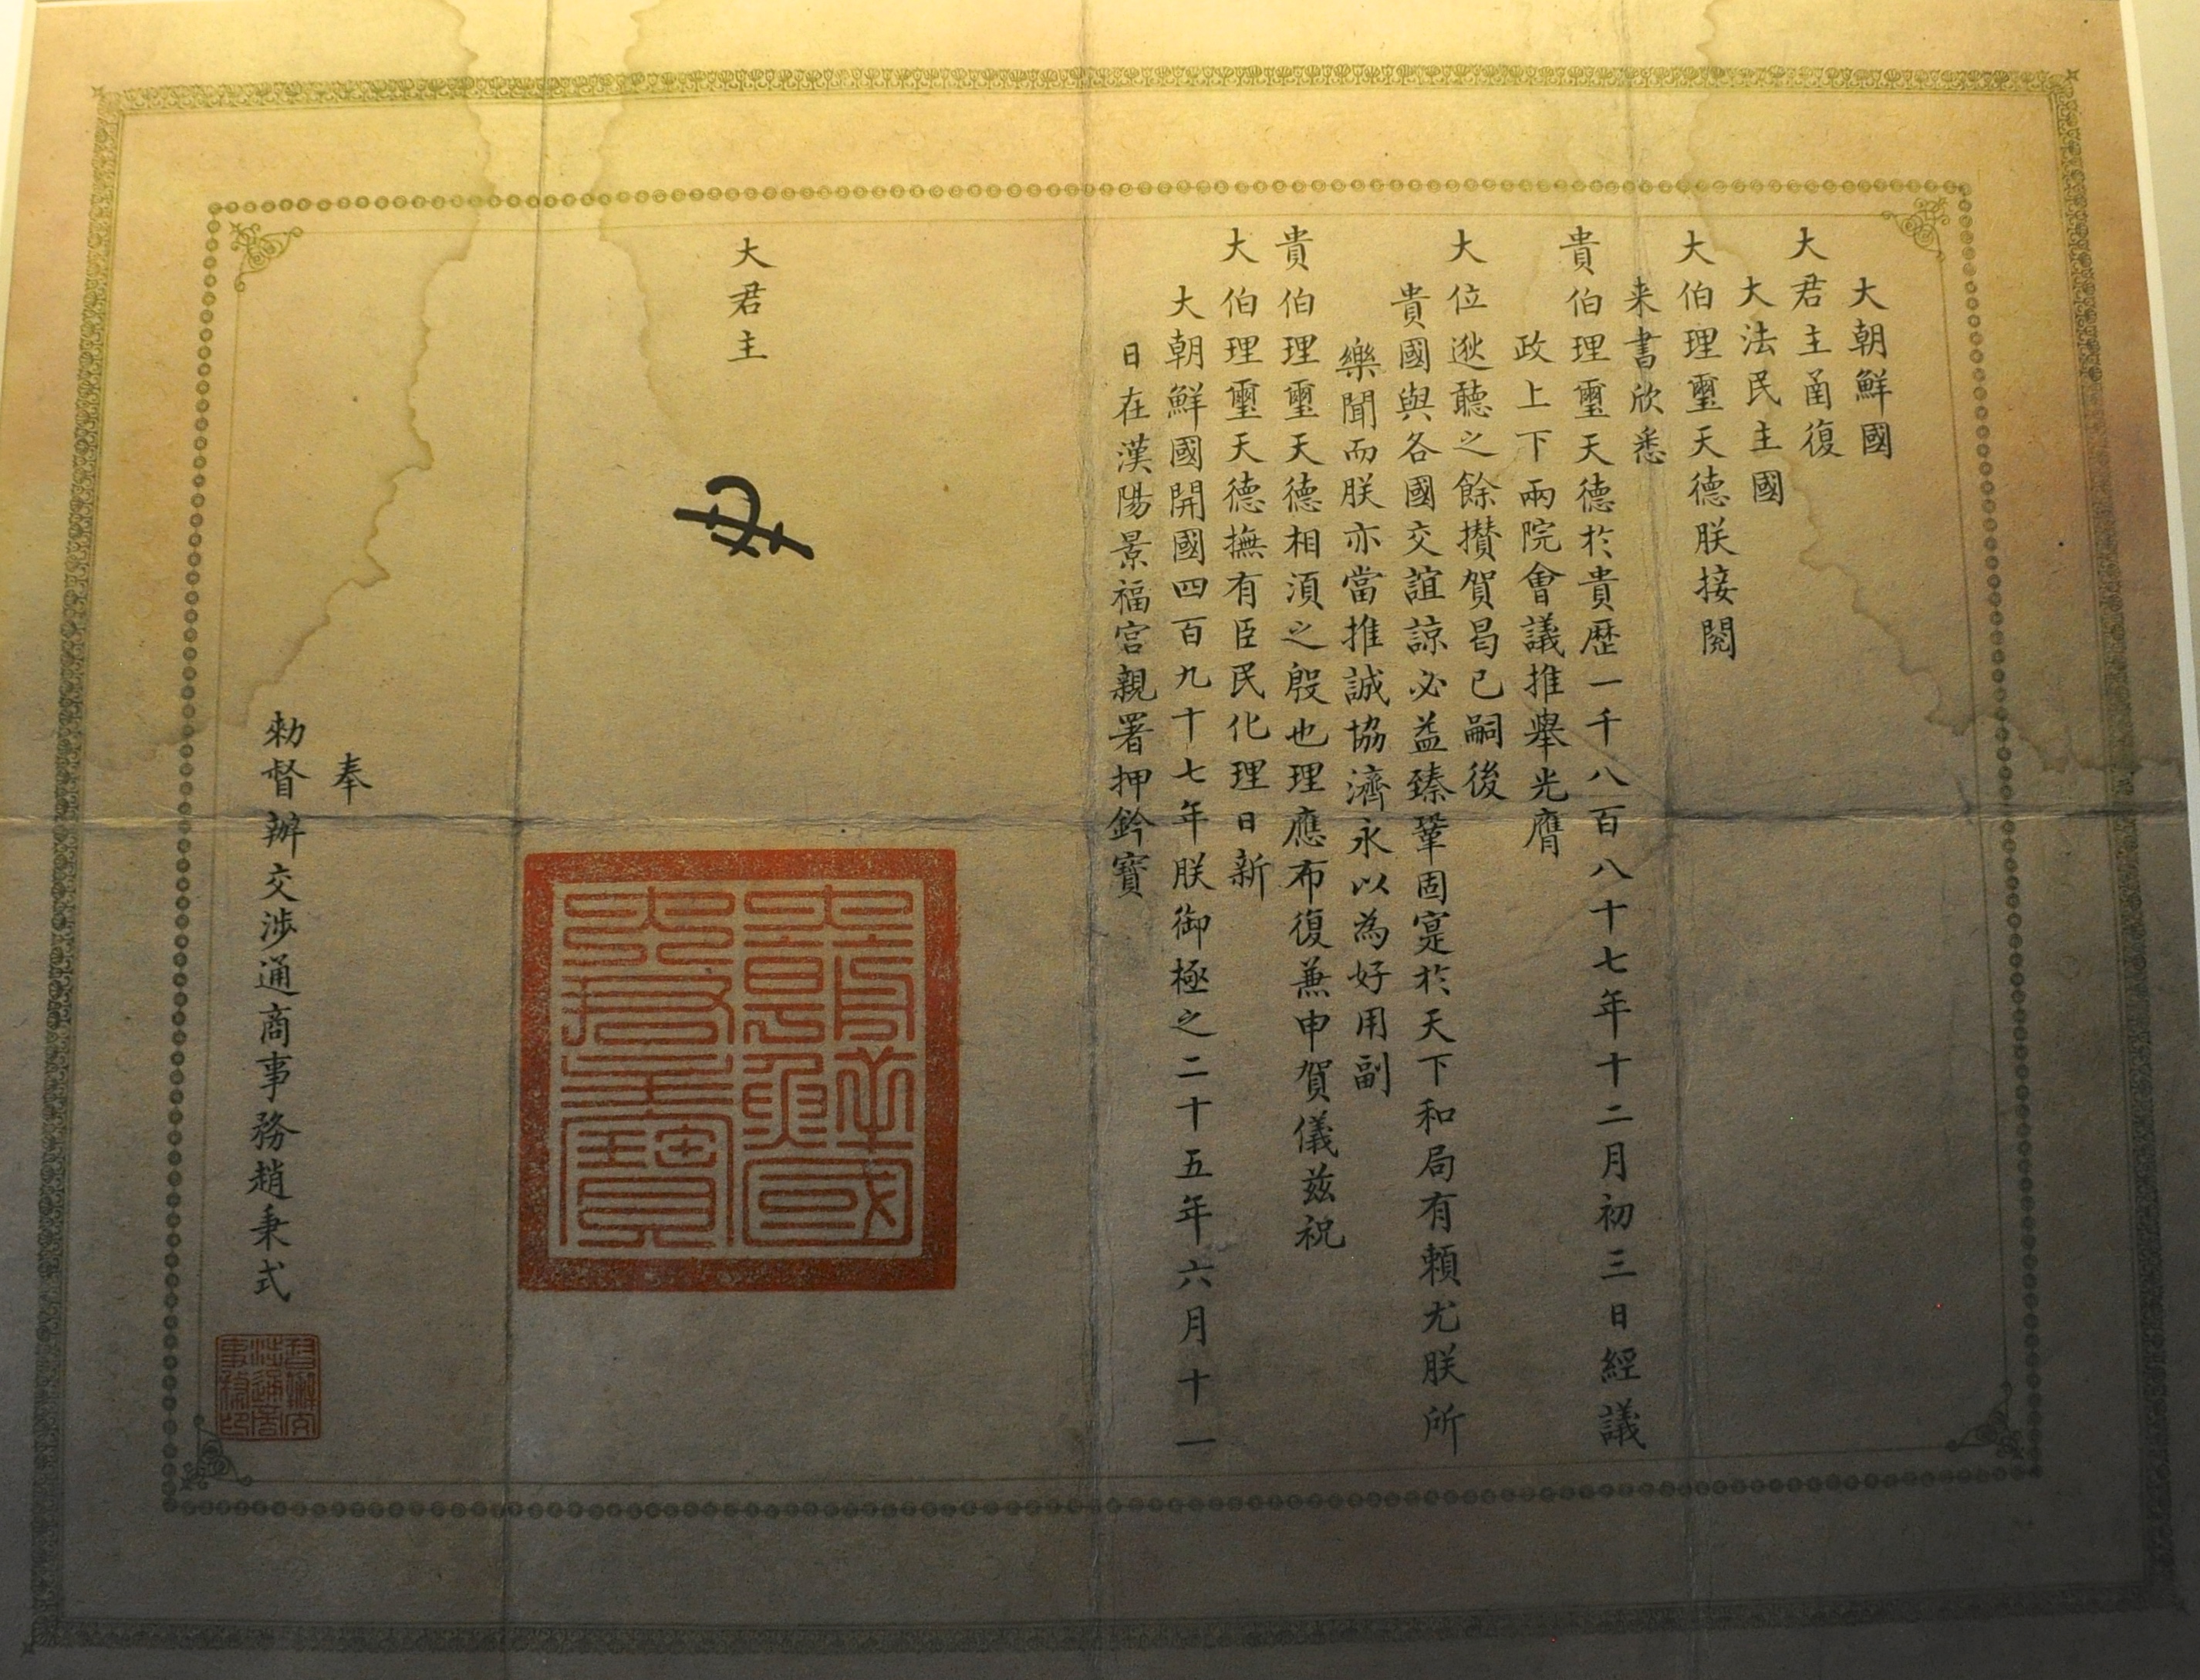 大朝鮮國
大君主甬復
大法民主國
大伯理璽天德朕接閱
来書欣悉
貴伯理璽天德於貴歷一千八百八十七年十二月初三日經議
政上下兩院會議推舉光膺
大位逖聽之餘攢賀曷已嗣後
貴國與各國交誼諒必益臻鞏固寔於天下和局有賴尤朕所
樂聞而朕亦當推誠協濟永以為好用副
貴伯理璽天德相須之殷也理應布復兼申賀儀茲祝
大伯理璽天德撫有臣民化理日新
大朝鮮國開國四百九十七年朕御極之二十五年六月十一
日在漢陽景福宮親署押鈐寶
大君主
大朝鮮國
大君主寶
奉
勅督辦交涉通商事務趙秉式
督辦交
涉通商
事務印